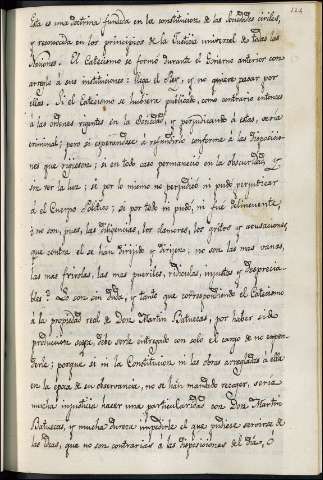 124
Esta es una doctrina fundada en la constitucion de las Sociedades civiles,
y reconocida en los principios de la Justicia universal de todas las
Naciones. El Catecismo se formó durante el Govierno anterior con
arreglo á sus instituciones: llega el Rey, y no quiere pasar por
ellas. Si el Catecismo se hubiera publicado, como contrario entonces
á las ordenes vigentes en la Sociedad, y perjudicando á estas, seria
criminal; pero si esperandose á refundirlo conforme á las Disposicio-
nes que rigiesen; si en todo caso permaneció en la obscuridad
sin ver la luz; si por lo mismo no perjudicó ni pudo perjudicar
á el Cuerpo Politico; si por todo ni pudo, ni fue delincuente,
¿no son, pues, las diligencias, los clamores, los gritos y acusaciones,
que contra el se han dirijido y dirijen; no son las mas vanas,
las mas frivolas, las mas pueriles, ridiculas, injustas y desprecia-
bles? Lo son sin duda, y tanto que correspondiendo el Catecismo
á la propiedad real de Don Martin Batuecas, por haber sido
produccion suya, debe serle entregado con solo el cargo de no expen-
derle; porque si ni la Constitucion ni las obras arregladas á ella
en la epoca de su observancia, no se han mandado recoger, seria
mucha injusticia hacer una particularidad con Don Martin
Batuecas, y mucha dureza impedirle el que pudiese servirse de
las ideas, que no son contrarias á las disposiciones del dia, ó